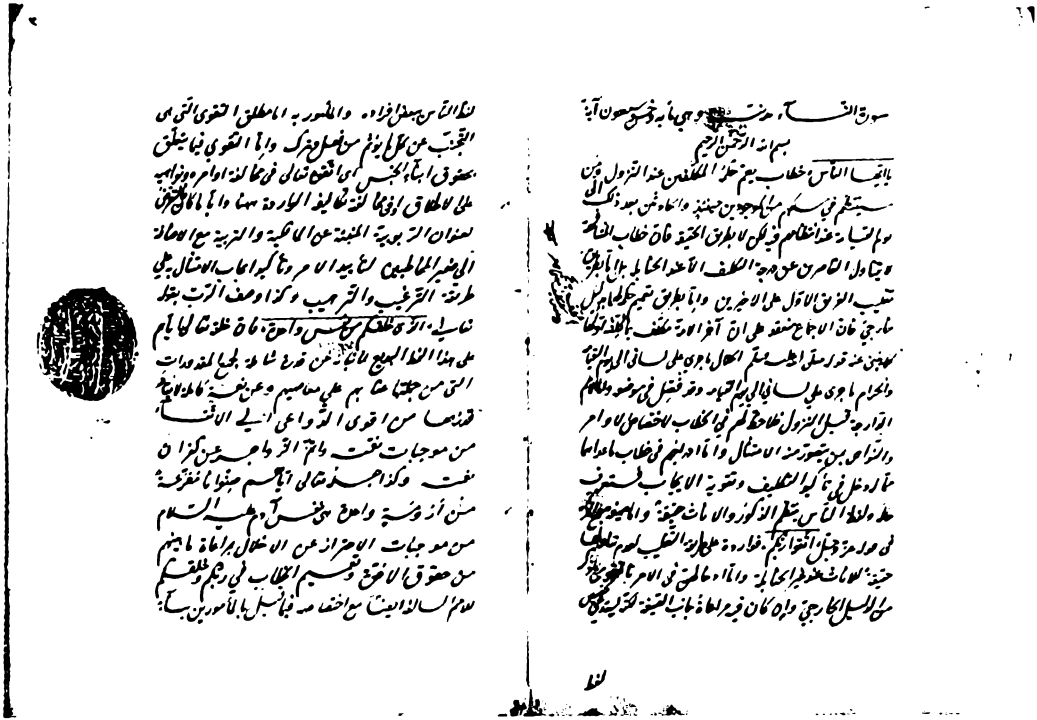 سورة النساء مدنية وهي مائة وخمس وسبعون آية
بسم الله الرحمن الرحيم
يا ايها الناس خطاب يعم حكمه المكلفين عند النزول ومن
سينتظم في سلكهم من الموجودين حينئذ والحادثين بعد ذلك الى
يوم القيامة عند انتظامهم فيه لكن لا بطريق الحقيقة فان خطاب المشافهة
لا يتناول القاصرين عن درجة التكليف الا عند الحنابلة بل اما بطريق
تغليب الفريق الاول على الاخيرين واما بطريق تعميم حكمه لهما بدليل
خارجي فان الاجماع منعقد على ان آخر الامة مكلف بما كلف به اولها
كما ينبئ عنه قوله صلى الله عليه وسلم الحلال ما جرى على لساني الى يوم القيامة
والحرام ما جرى على لساني الى يوم القيامة وقد فصل في موضعه واما الامم
الدارجة قبل النزول فلا حظ لهم في الخطاب لاختصاص الاوامر
والنواهي بمن يتصور منه الامتثال واما اندراجهم في خطاب ما عداهما
مما له دخل في تأكيد التكليف وتقوية الايجاب فستعرف
حاله ولفظ الناس ينتظم الذكور والاناث حقيقة واما صيغة جمع المذكر
في قوله عز وجل اتقوا ربكم فواردة على طريقة التغليب لعدم تناولها
حقيقة للاناث عند غير الحنابلة واما ادخالهن في الامر بالتقوى بما ذكر
من الدليل الخارجي وان كان فيه مراعاة جانب الصيغة لكنه يستدعي تخصيص
لفظ
لفظ الناس ببعض افراده والمأمور به اما مطلق التقوى التي هي
التجنب عن كل ما يؤثم من فعل وترك واما التقوى فيما يتعلق
بحقوق ابناء الجنس اي اتقوه تعالى في مخالفة اوامره ونواهيه
على الاطلاق او في مخالفة تكاليفه الواردة ههنا وايا ما كان فالتعرض
لعنوان الربوبية المنبئة عن المالكية والتربية مع الاضافة
الى ضمير المخاطبين لتأييد الامر وتأكيد ايجاب الامتثال به على
طريقة الترغيب والترهيب وكذا وصف الرب بقوله
تعالى الذي خلقكم من نفس واحدة فان خلقه تعالى اياهم
على هذا النمط البديع لانبائه عن قدرة شاملة لجميع المقدورات
التي من جملتها عقابهم على معاصيهم وعن نعمة كاملة لا يقادر
قدرها من اقوى الدواعي الى الاتقاء
من موجبات نقمته واتم الزواجر عن كفران
نعمته وكذا جعله تعالى اياهم صنوانا مفرعة
من ارومة واحدة هي نفس آدم عليه السلام
من موجبات الاحتراز عن الاخلال بمراعاة ما بينهم
من حقوق الاخوة وتعميم الخطاب في ربكم وخلقكم
للامم السالفة ايضا مع اختصاصه فيما قبل بالمأمورين بناء